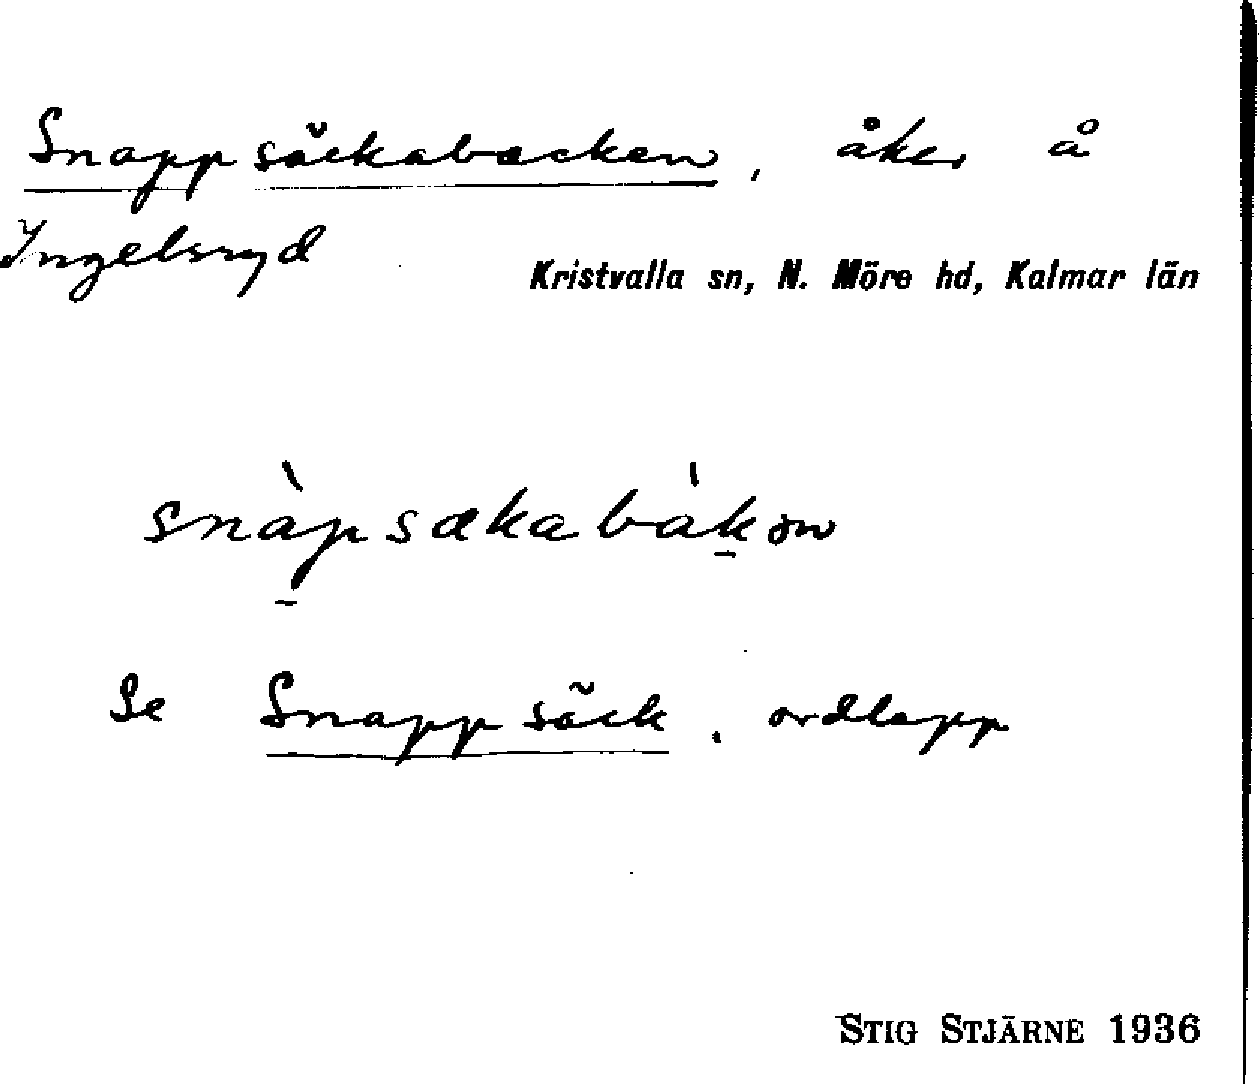 Snappsäckabacken, åker å
Ingelsryd
Kristvalla sn, N. Möre hd, Kalmar län
snàp̠sækabàk̠ən
Se Snappsäck, ordlapp
STIG STJÄRNE 1936